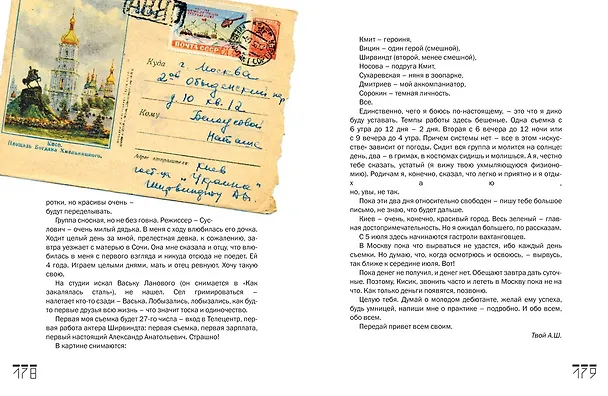 АВИА
ПОЧТА СССР
Куда г. Москва
2ой Обыденский пер
д 10 кв. 12
Кому Белоусовой
Наташе
Адрес отправителя: Киев
гост-ца "Украина"
Ширвиндту А.
Киев.
Площадь Богдана Хмельницкого.
ротки, но красивы очень –
будут переделывать.
Группа сносная, но не без говна. Режиссер – Сус-
лович – очень милый дядька. В меня с ходу влюбилась его дочка.
Ходит целый день за мной, прелестная девка, к сожалению, зав-
тра уезжает с матерью в Сочи. Она мне сказала и отцу, что влю-
билась в меня с первого взгляда и никуда отсюда не поедет. Ей
4 года. Играем целыми днями, мать и отец ревнуют. Хочу такую
свою.
На студии искал Ваську Ланового (он снимается в «Как
закалялась сталь»), не нашел. Сел гримироваться –
налетает кто-то сзади – Васька. Лобызались, лобызались, как буд-
то первые друзья всю жизнь – что значит тоска и одиночество.
Первая моя съемка будет 27-го числа – вход в Телецентр, пер-
вая работа актера Ширвиндта: первая съемка, первая зарплата,
первый настоящий Александр Анатольевич. Страшно!
В картине снимаются:
178
Кмит – героиня,
Вицин – один герой (смешной),
Ширвиндт (второй, менее смешной),
Носова – подруга Кмит,
Сухаревская – няня в зоопарке,
Дмитриев – мой аккомпаниатор,
Сорокин – темная личность.
Все.
Единственно, чего я боюсь по-настоящему, – это что я дико
буду уставать. Темпы работы здесь бешеные. Одна съемка с
6 утра до 12 дня – 2 дня. Вторая с 6 вечера до 12 ночи или
с 9 вечера до 4 утра. И главное – все в этом «искус-
стве» зависит от погоды. Сидит вся группа и молится на солнце:
день, два – в гримах, в костюмах сидишь и молишься. А я, честно
тебе сказать, уставый (я вижу твою ухмыляющуюся физионо-
мию). Родичам я, конечно, сказал, что легко и приятно и я отды-
х а ю ,
но, увы, не так.
Пока эти два дня относительно свободен – пишу тебе большое
письмо, не знаю, что будет дальше.
Киев – очень, конечно, красивый город. Весь зеленый – глав-
ная достопримечательность. Но я ожидал большего, по рассказам.
С 5 июля здесь начинаются гастроли вахтанговцев.
В Москву пока что вырваться не удастся, ибо каждый день
съемки. Но думаю, что, когда осмотрюсь и освоюсь, – вырвусь,
так ближе к середине июля. Вот!
Пока денег не получил, и денег нет. Обещают завтра дать суточ-
ные. Поэтому, Кисик, звонить часто и лететь в Москву пока не на
что. Как только деньги появятся, позвоню.
Целую тебя. Думай о молодом дебютанте, желай ему успеха,
будь умницей, напиши мне о практике – подробно. И обо всем,
обо всем.
Передай привет всем своим.
Твой А.Ш.
179